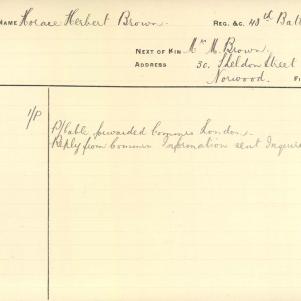 NAME Horace Herbert Brown. REG. &C. 48th Batt
NEXT OF KIN Mrs M. Brown.
ADDRESS 30. Sheldon Street
Norwood. F
1/P
P/Cable forwarded Commrs London.
Reply from Commrs Information sent Inquire